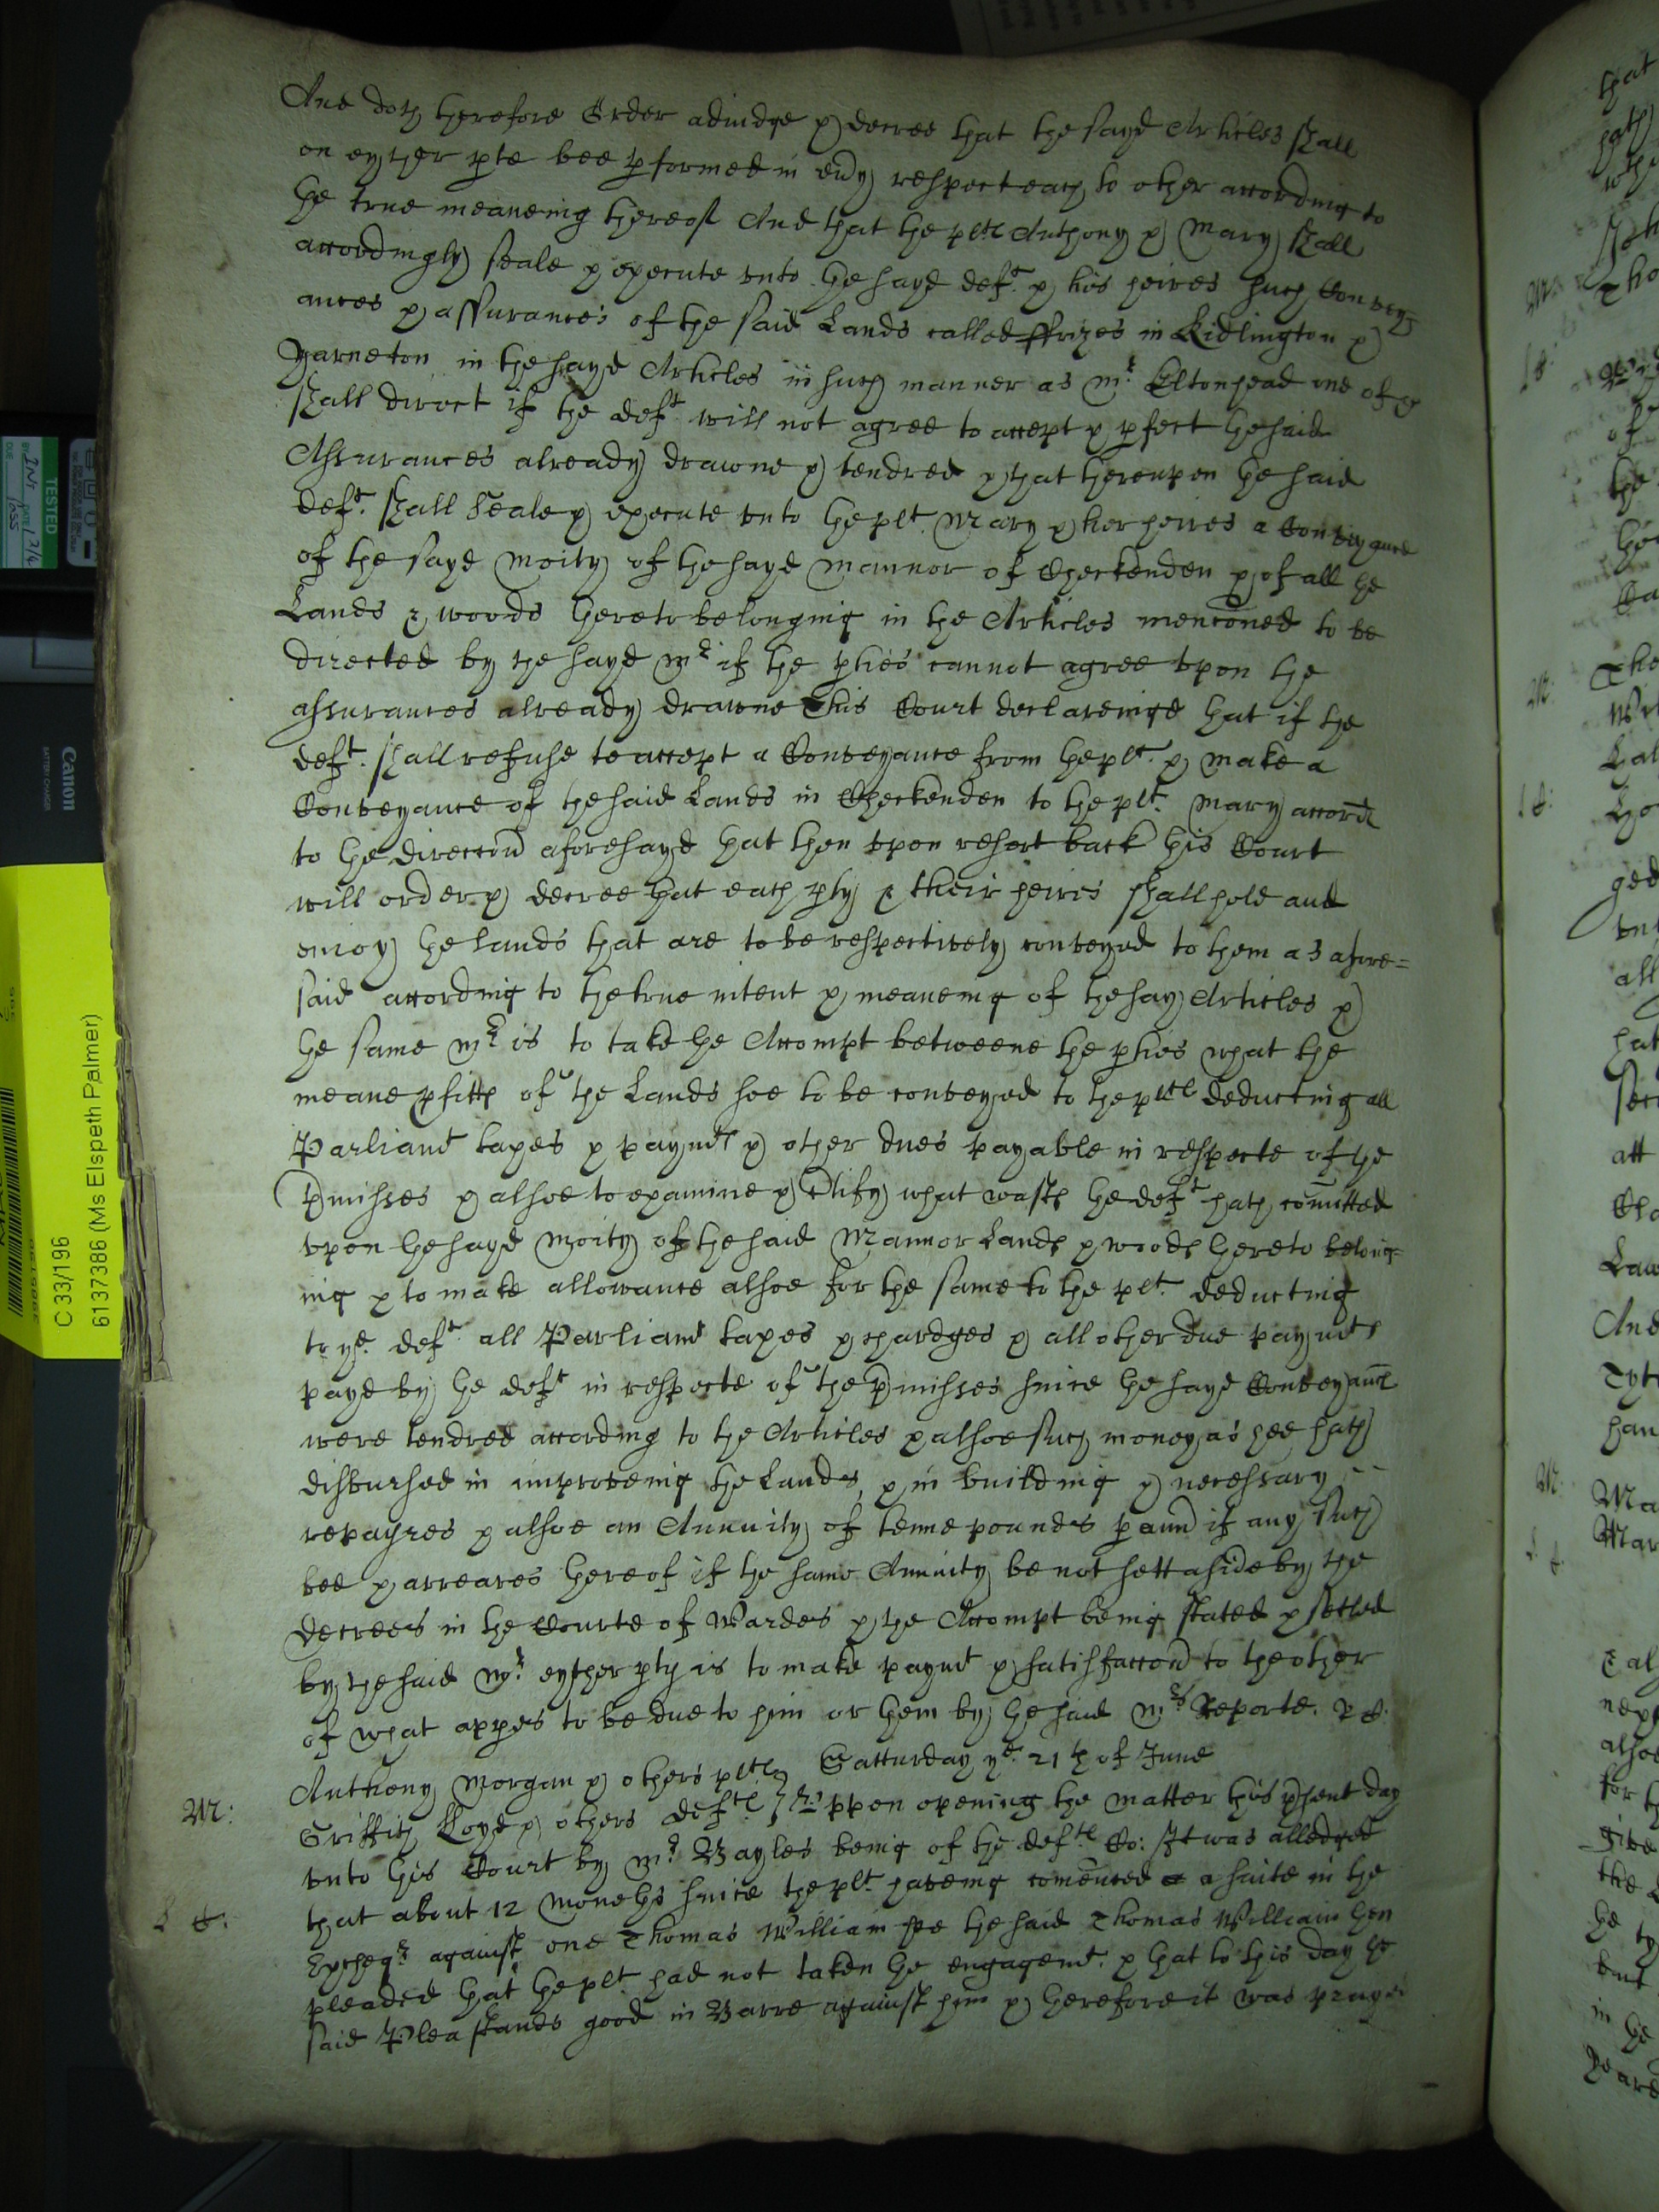 And doth therefore Order adiudge & decree that the sayd Articles shall
on eyther pte bee pformed in evry respect each to other according to
the true meaneing thereof And that the plts Anthony & Mary shall
accordingly seale & execute vnto the sayd deft. & his heires such Convey=
ances & assurances of the said Lands called ffrizes in Kidlington &
Yarneton in the sayd Articles in such manner as mr. Eltonhead one of &
shall direct if the deft. will not agree to accept & pfect the said
Assurances already drawne & tendred & that thereupon the said
deft. shall seale & execute vnto the plt. Mary & her heires a Conveyance
of the sayd moity of the sayd mannor of Checkenden & of all the
Lands & woods thereto belonging in the Articles menconed to be
directed by the sayd mr. if the pties cannot agree vpon the
assurances already drawne This Court declareinge that if the
deft. shall refuse to accept a Conveyance from the plt. & make a
Conveyance of the said Lands in Checkenden to the plt. Mary accord
to the direccon aforesayd that then vpon resort back this Court
will order & decree that each pty & their heires shall hold and
enioy the lands that are to be respectively conveyed to them as afore=
said according to the true intent & meaneing of the say Articles &
the same mr. is to take the Accompt betweene the pties what the
meane pfitts of the Lands soe to be conveyed to the plts deducting all
Parliamt taxes & paymts & other dues payable in respecte of the
pmisses & alsoe to examine & ctify what wasts the deft hath comitted
vpon the sayd moity of the said Mannor Lands & woods thereto belong=
ing & to make allowance alsoe for the same to the plt. deducting
to ye. deft. all Parliamt taxes & chardges & all other due paymts
payd by the deft in respecte of the pmisses since the sayd Conveyance
were tendred according to the Articles & alsoe such money as hee hath
disbursed in improveing the Lands, & in building & necessary
repayres & alsoe an Annuity of tenne pounds p ann if any such
bee & arreares thereof if the same Annuity be not sett aside by the
decrees in the Courte of Wardes & the Accompt being stated & setled
by the said mr. eyther pty is to make paymt & satisfaccon to the other
of what appes to be due to him or them by the said mrs Reporte. R C.
Anthony Morgan & others plts Satturday ye. 21th of June
M:
Griffith Loyd & others defts Vppon opening the matter this psent day
vnto this Court by mr. Bayles being of the defts Co: It was alledged
that about 12 moneths since the plt. haveing comenced a suite in the
L C:
Exchegr. against one Thomas William hee the said Thomas William then
pleaded that the plt. had not taken the engagemt. & that to this day the
said Plea stands good in Barre against him & therefore it was prayed
TESTED
Canon
BATTERY CHARGER
C 33/196
6137386 (Ms Elspeth Palmer)